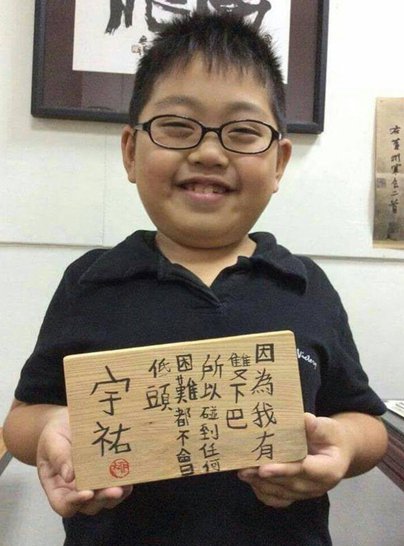 因為我有
雙下巴
所以碰到任何
困難都不會
低頭
宇祐